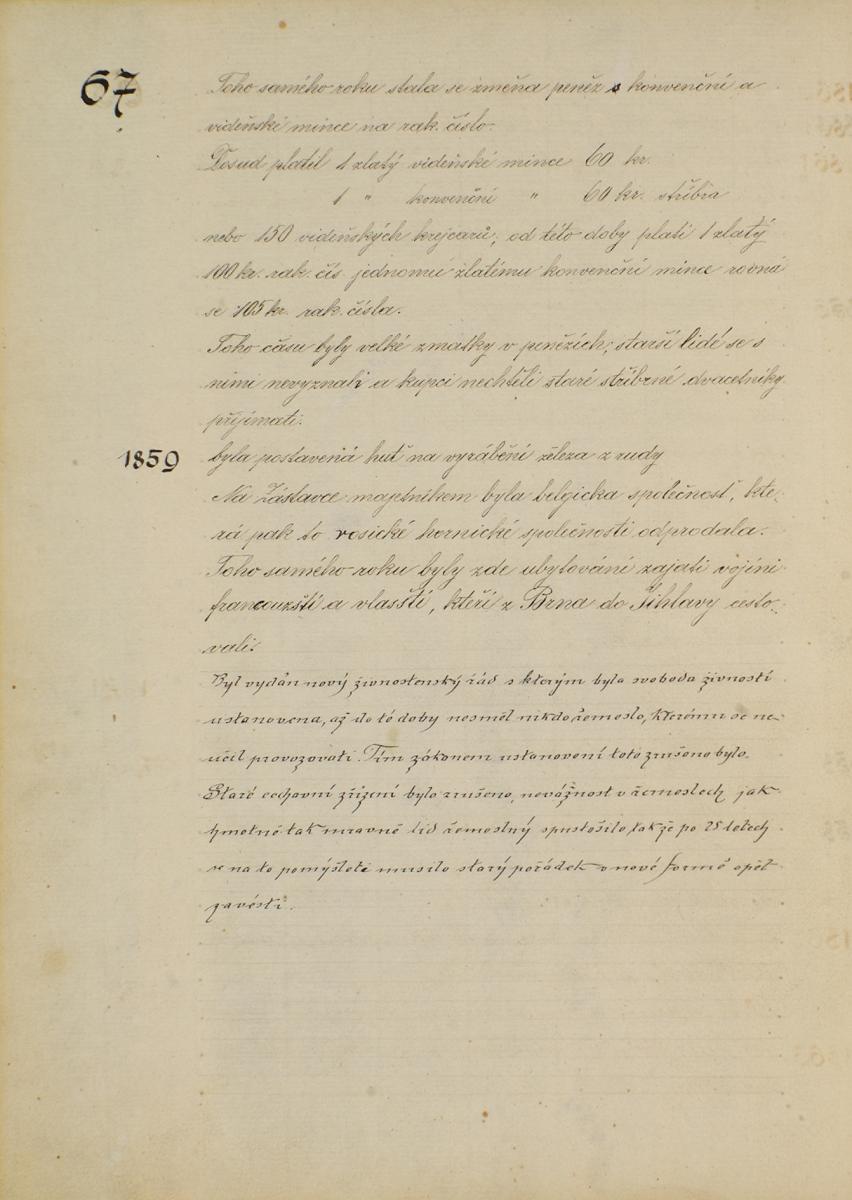 67
Toho samého roku stala se změna peněz s konvenční a
vídeňské mince na rak. číslo.
Posud platil 1 zlatý vídeňské mince 60 kr.
1 " konvenční " 60 kr. stříbra
nebo 150 vídeňských krejcarů; od této doby platí 1 zlatý
100 kr. rak. čís. jednomu zlatému konvenční mince rovná
se 105 kr. rak. čísla.
Toho času byly velké zmatky v penězích; starší lidé se s
nimi nevyznali a kupci nechtěli staré stříbrné dvacetníky
přijímati.
1859 byla postavená huť na vyrábění železa z rudy
Na Zástavce majetníkem byla belgická společnost, kte-
rá pak to rosické hornické společnosti odprodala.
Toho samého roku byly zde ubytováni zajatí vojíni
francouzští a vlasští, kteří z Brna do Jihlavy cesto-
vali.
Byl vydán nový živnostenský řád s kterým byla svoboda živností
ustanovena, až do té doby nesměl nikdo řemeslo, kterému se ne-
učil provozovati. Tím zákonem ustanovení toto zrušeno bylo.
Staré cechovní zřízení bylo zrušeno, nevážnost v řemeslech jak
hmotně tak mravně lid řemeslný spustošilo, tak že po 25 letech
se na to pomýšleti musilo starý pořádek v nové formě opět
zavésti.